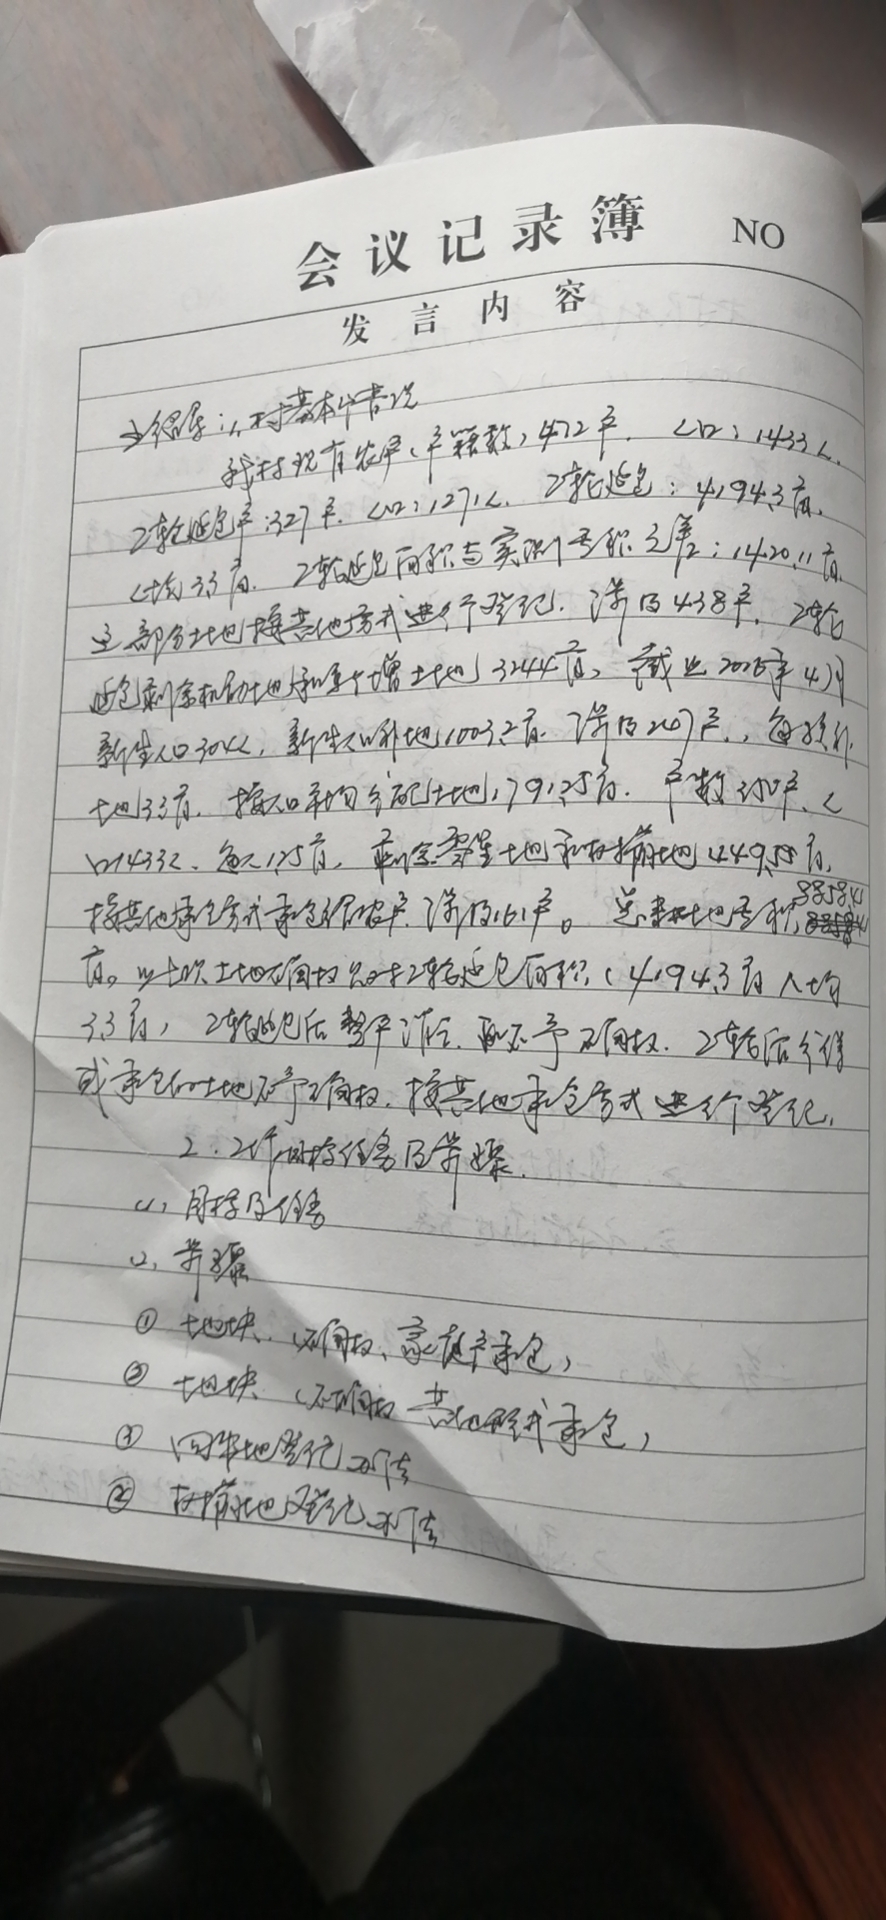 会议记录簿 NO
发言内容
1、村基本情况
我村现有农户(户籍数)472户. 人口:1433人.
2轮延包户:327户. 人口:1271人. 2轮延包:4194.3亩.
人均3.3亩. 2轮延包面积与实测面积之差:1420.11亩.
这部分土地按其他方式进行登记. 涉及438户. 2轮
延包剩余机动地和 增土地 亩, 截止2025年4月
新生人口304人, 新生人口补地1003.2亩. 涉及207户, 每人补
地3.3亩. 按人口平均分配土地1791.25亩. 户数 户、人
口1433人、每人1.25亩, 剩余零星土地和 地449.55亩,
按其他承包方式承包给农户. 涉及161户。 总 土地面积8858.41
亩。 次土地确权只对2轮延包面积(4194.3亩 人均
3.3亩) 2轮延包后 不予确权. 2轮后分得
或承包的土地不予确权. 按其他承包方式进行登记.
2. 工作目标任务及步骤.
(1) 目标及任务
(2) 步骤
① 地块 (确权、家庭户承包)
② 地块 (不确权 其他形式承包)
③ 地登记办法
④ 地登记办法